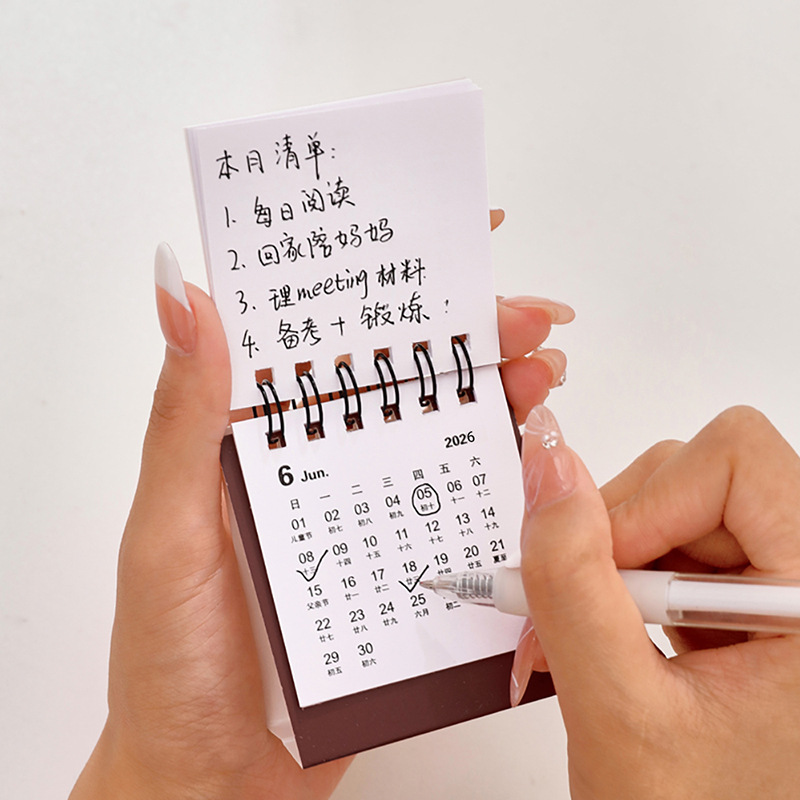 本月清单:
1. 每日阅读
2. 回家陪妈妈
3. 理meeting材料
4. 备考+锻炼!
2026
6 Jun.
日 一 二 三 四 五 六
01 02 03 04 05 06 07
儿童节 初七 初八 初九 初十 十一 十二
08 09 10 11 12 13 14
十三 十四 十五 十六 十七 十八 十九
15 16 17 18 19 20 21
父亲节 廿一 廿二 廿三 廿四 廿五 夏至
22 23 24 25
廿七 廿八 廿九 六月 初二
29 30
初五 初六